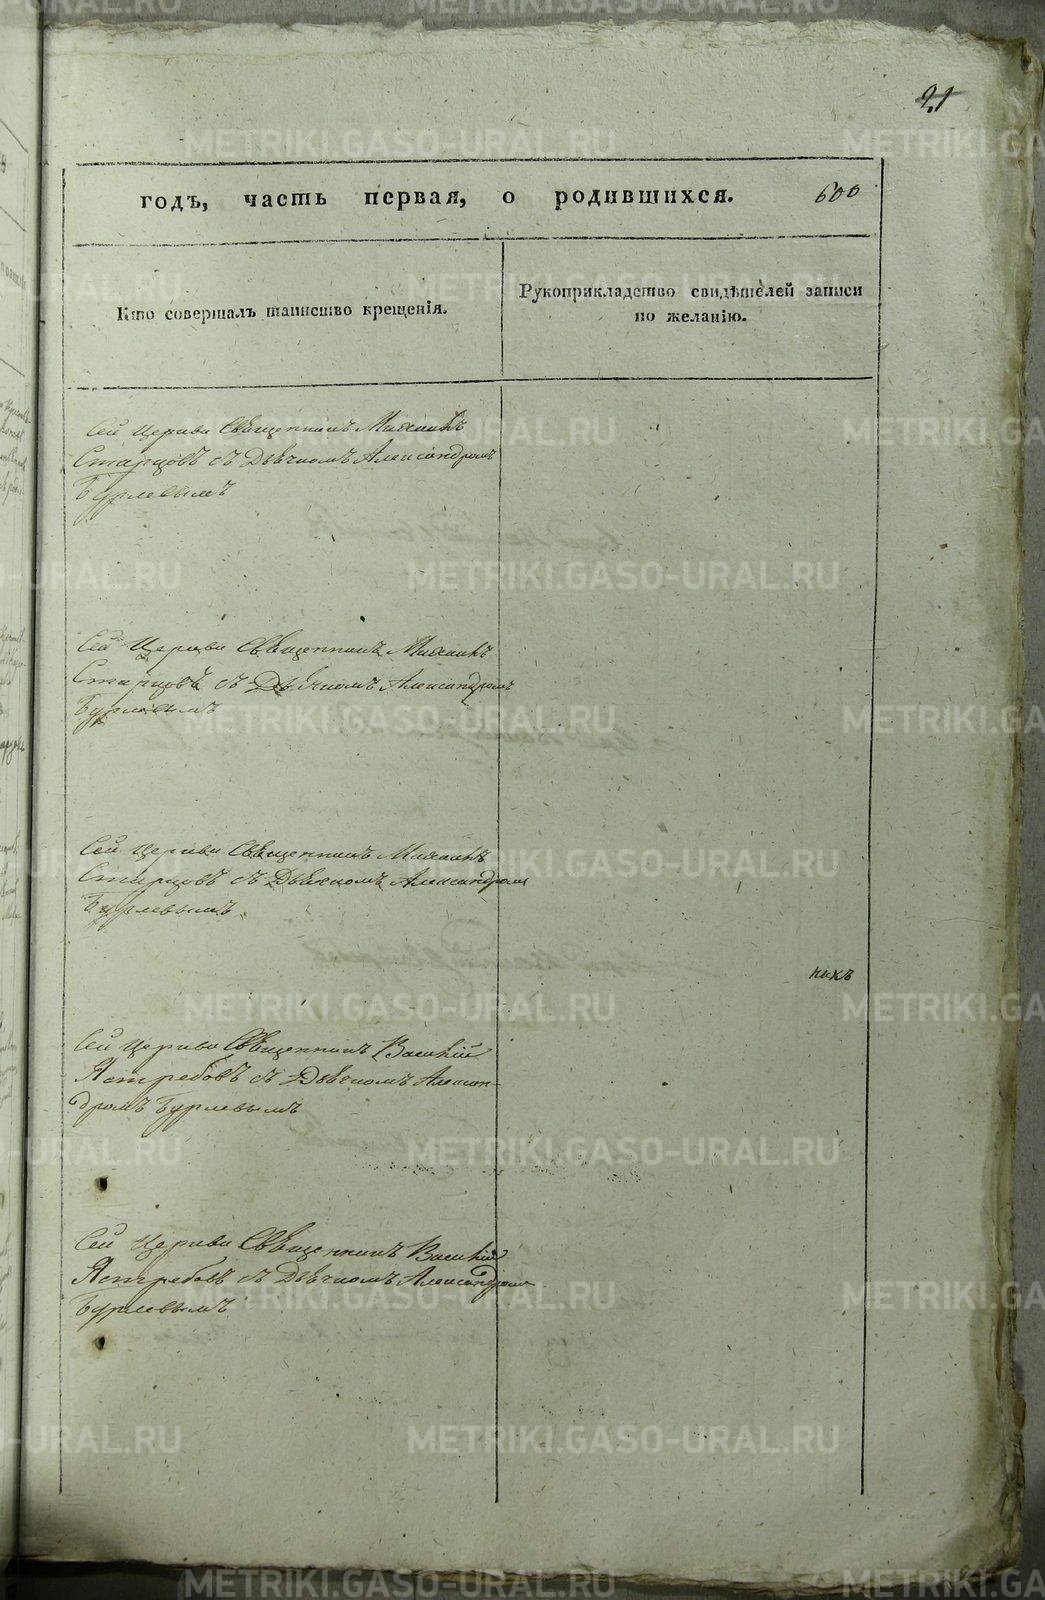 21
годъ, часть первая, о родившихся. 600
Кто совершалъ таинство крещенія.
Рукоприкладство свидѣтелей записи
по желанію.
Сей Церкви Священникъ Михаилъ
Старцовъ съ Дьячкомъ Александромъ
Бурлевымъ
Сей Церкви Священникъ Михаилъ
Старцовъ съ Дьячкомъ Александромъ
Бурлевымъ
Сей Церкви Священникъ Михаилъ
Старцовъ съ Дьячкомъ Александромъ
Бурлевымъ.
никъ
Сей Церкви Священникъ Василій
Ястребовъ съ Дьячкомъ Алексан-
дромъ Бурлевымъ
Сей Церкви Священникъ Василій
Ястребовъ съ Дьячкомъ Александромъ
Бурлевымъ
METRIKI.GASO-URAL.RU